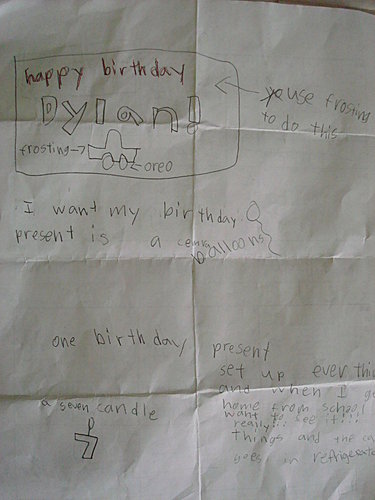 happy birthday
Dylan!
use frosting
to do this
frosting
oreo
I want my birthday
present is a
balloons
one birthday present
a seven candle
7
set up
and when I
home from school
want to see it!!!
really!!!
things and the
goes in